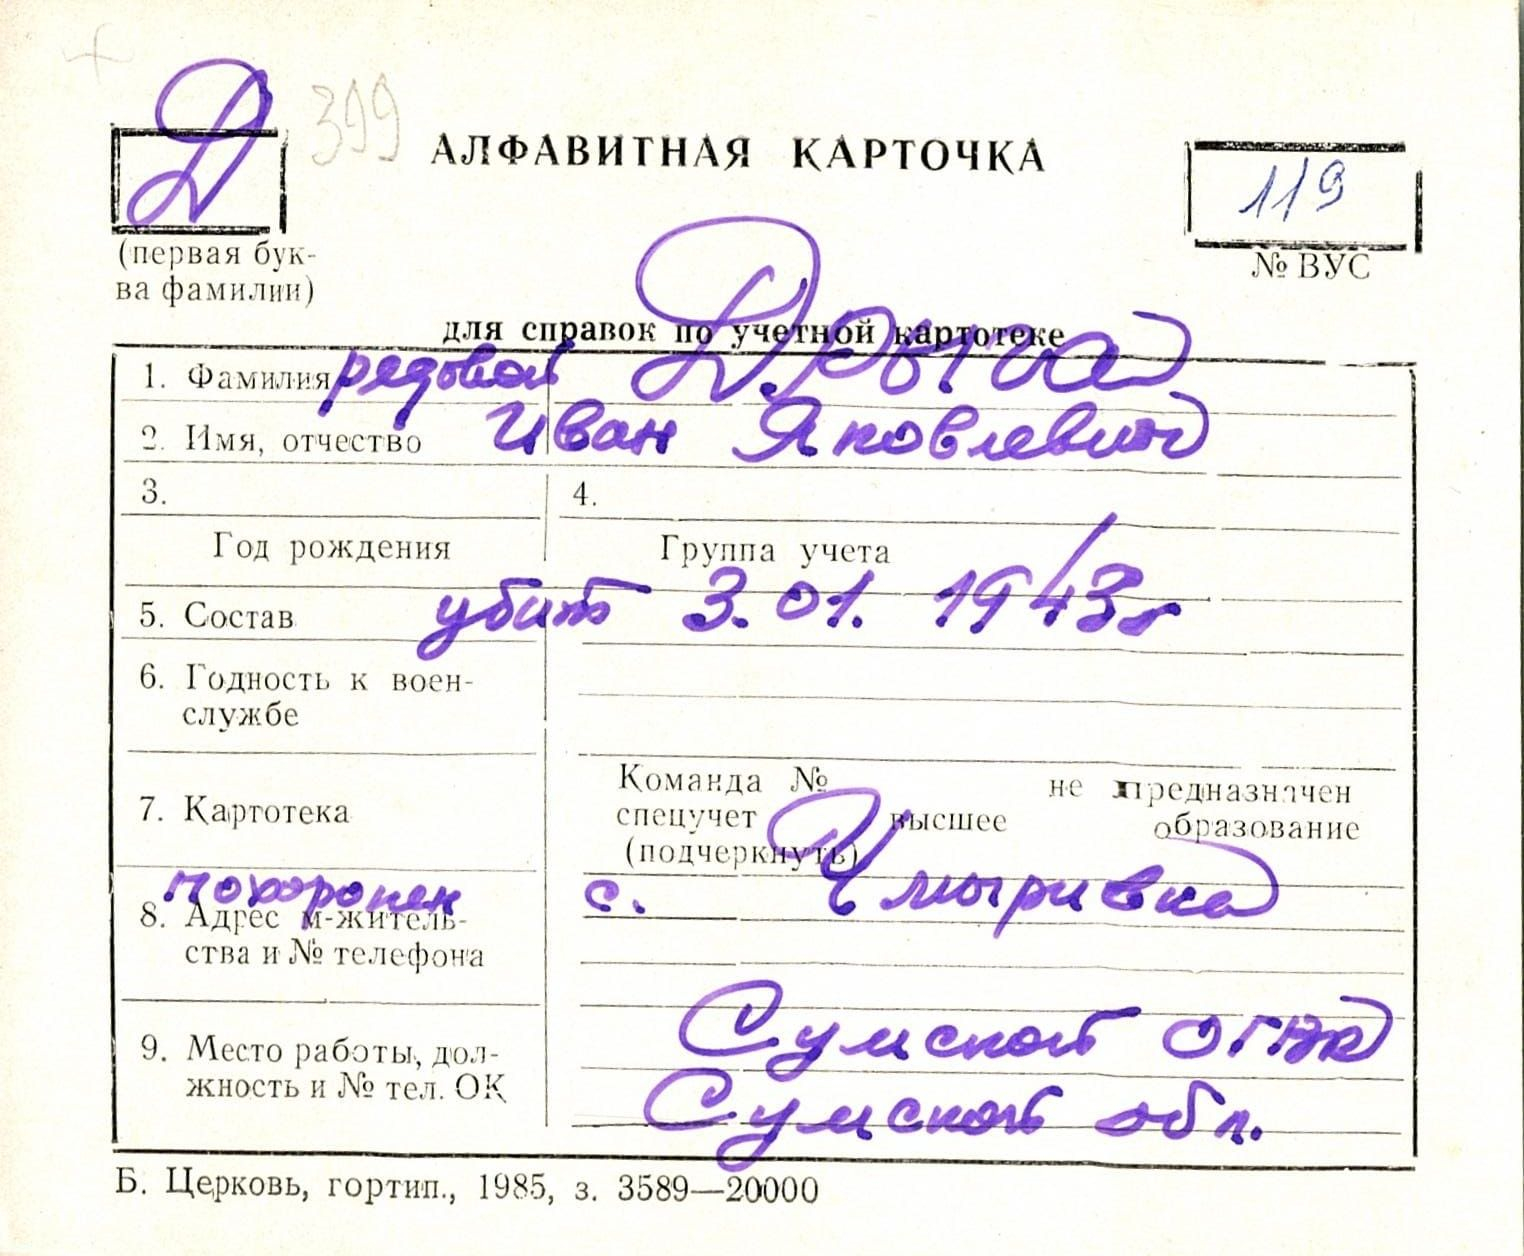 Д
399
АЛФАВИТНАЯ КАРТОЧКА
119
(первая бук-
ва фамилии)
№ ВУС
для справок по учетной картотеке
1. Фамилия рядовой Дрыга
2. Имя, отчество Иван Яковлевич
3.
4.
Год рождения
Группа учета
5. Состав убит 3.01.1943г
6. Годность к воен-
службе
7. Картотека
Команда № не предназначен
спецучет высшее образование
(подчеркнуть)
похоронен с. Чмыривка
8. Адрес м-житель-
ства и № телефона
Сумской
9. Место работы, дол-
жность и № тел. ОК
Сумской обл.
Б. Церковь, гортип., 1985, з. 3589—20000